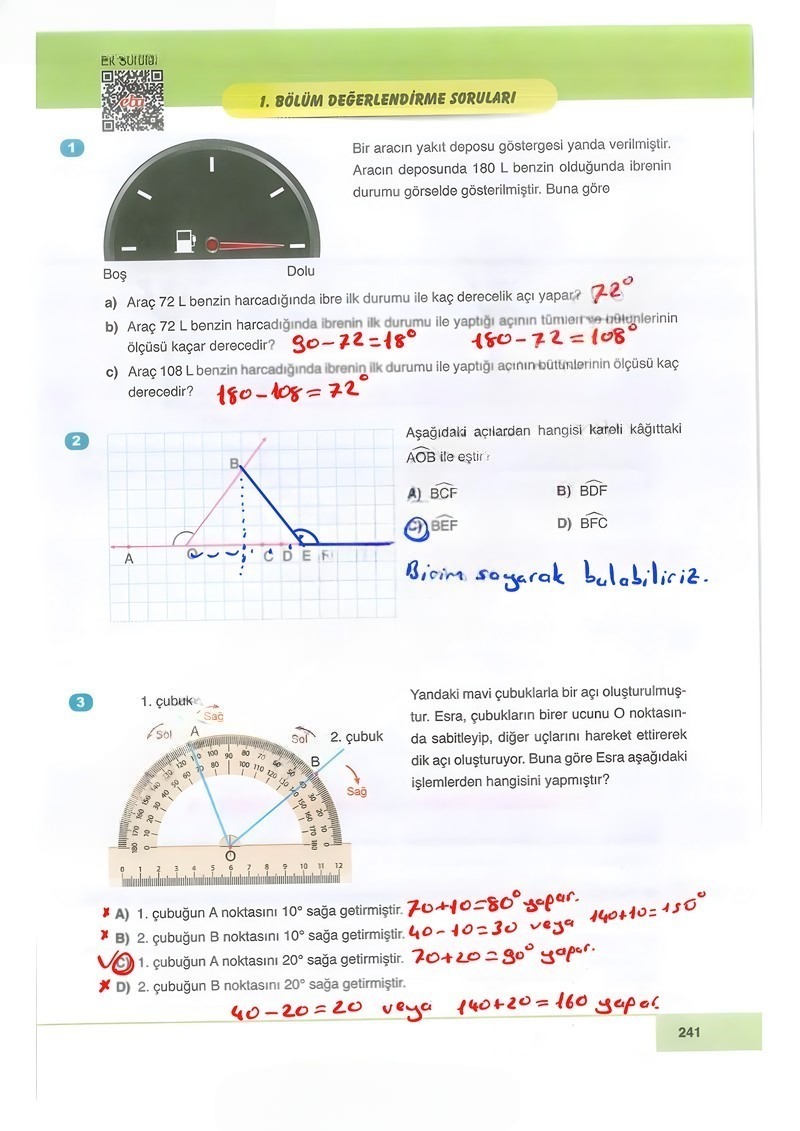 EK SORULAR
eba
1. BÖLÜM DEĞERLENDİRME SORULARI
1
Boş
Dolu
Bir aracın yakıt deposu göstergesi yanda verilmiştir.
Aracın deposunda 180 L benzin olduğunda ibrenin
durumu görselde gösterilmiştir. Buna göre
a) Araç 72 L benzin harcadığında ibre ilk durumu ile kaç derecelik açı yapar? 72°
b) Araç 72 L benzin harcadığında ibrenin ilk durumu ile yaptığı açının tümleri ve bütünlerinin
ölçüsü kaçar derecedir? 90-72=18° 180-72=108°
c) Araç 108 L benzin harcadığında ibrenin ilk durumu ile yaptığı açının bütünlerinin ölçüsü kaç
derecedir? 180-108=72°
2
B
A O C D E F
Aşağıdaki açılardan hangisi kareli kâğıttaki
AOB ile eştir?
A) BCF B) BDF
C) BEF D) BFC
Birim sayarak bulabiliriz.
3
1. çubuk
Sağ
Sol A
Sol 2. çubuk
B
Sağ
O
0 1 2 3 4 5 6 7 8 9 10 11 12
Yandaki mavi çubuklarla bir açı oluşturulmuş-
tur. Esra, çubukların birer ucunu O noktasın-
da sabitleyip, diğer uçlarını hareket ettirerek
dik açı oluşturuyor. Buna göre Esra aşağıdaki
işlemlerden hangisini yapmıştır?
x A) 1. çubuğun A noktasını 10° sağa getirmiştir. 70+10=80° yapar.
x B) 2. çubuğun B noktasını 10° sağa getirmiştir. 40-10=30 veya 140+10=150°
C) 1. çubuğun A noktasını 20° sağa getirmiştir. 70+20=90° yapar.
x D) 2. çubuğun B noktasını 20° sağa getirmiştir.
40-20=20 veya 140+20=160 yapar.
241